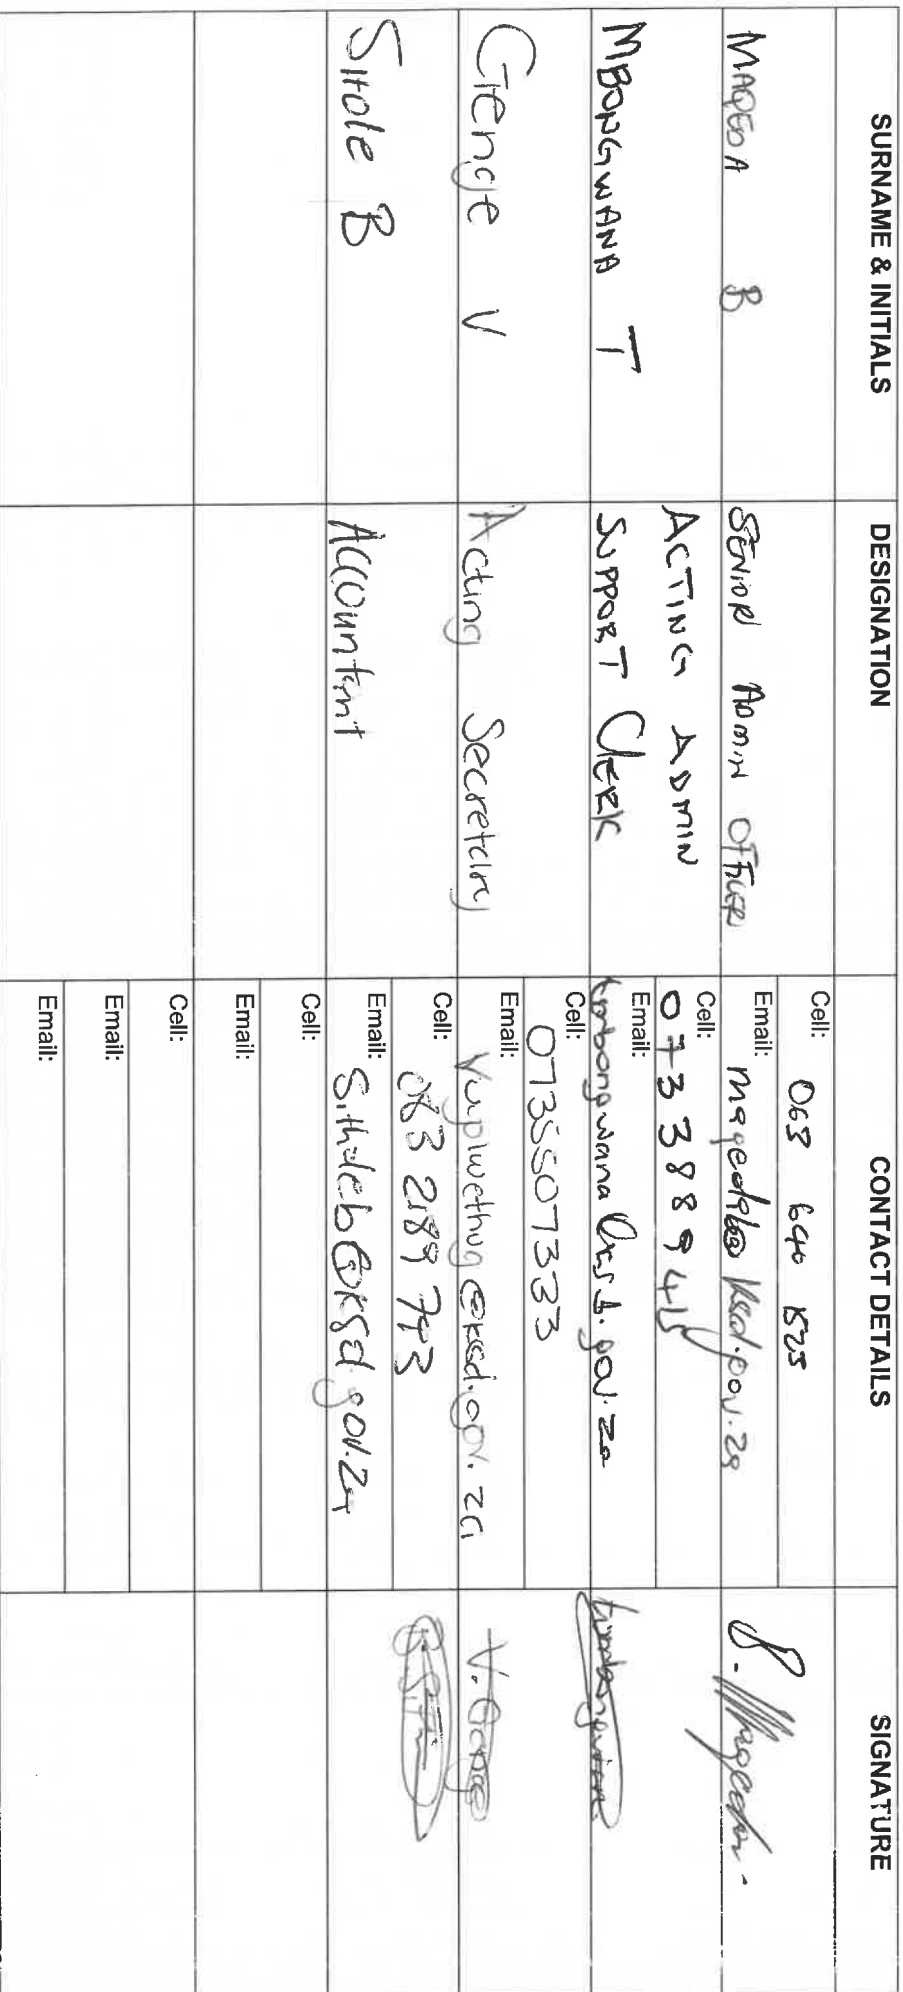 SURNAME & INITIALS DESIGNATION CONTACT DETAILS SIGNATURE
MAQEDA B SENIOR ADMIN OFFICER Cell: 063 640 1525
Email: maqedab@ksd.gov.za B. Maqeda.
MBONGWANA T ACTING ADMIN SUPPORT CLERK Cell: 073 388 9415
Email: tmbongwana@ksd.gov.za tmbongwana
Genge V Acting Secretary Cell: 0735507333
Email: Vuyiwethug@ksd.gov.za V. Genge
Sitole B Accountant Cell: 083 2189 743
Email: Sithole b@ksd.gov.za
Cell:
Email:
Cell:
Email:
Email: